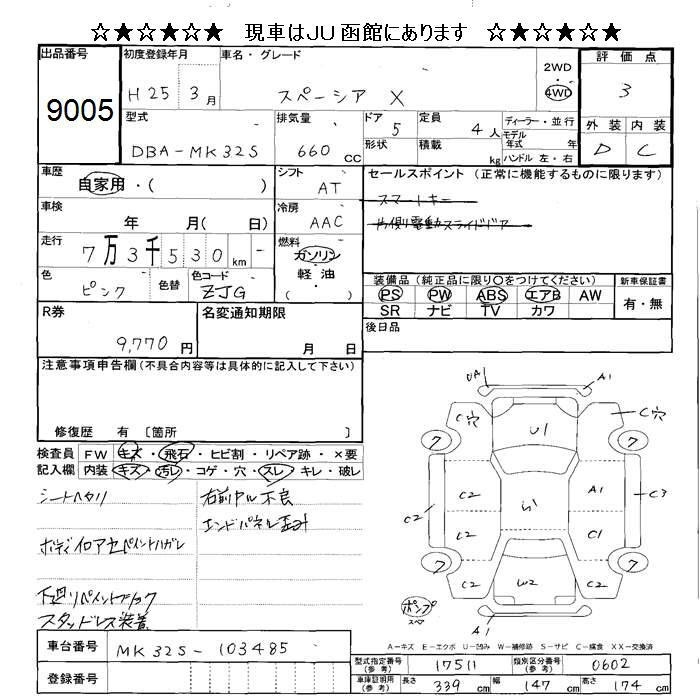 ☆★☆★☆ 現車はJU函館にあります ☆★☆★☆
出品番号
9005
初度登録年月
H25 3月
車名・グレード
スペーシア X
2WD
4WD
評価点
3
外装 内装
D C
型式
DBA-MK32S
排気量
660 CC
ドア
5
形状
定員
4人
積載
kg
ディーラー・並行
モデル年式 年
ハンドル 左・右
車歴
自家用・( )
シフト
AT
車検
年 月( 日)
冷房
AAC
走行
7万3千530km
燃料
ガソリン
軽油
( )
色
ピンク
色替
色コード
ZJG
セールスポイント (正常に機能するものに限ります)
スマートキー
片側電動スライドドア
装備品 (純正品に限り○をつけてください)
PS PW ABS エアB AW
SR ナビ TV カワ
新車保証書
有・無
後日品
R券
9,770円
名変通知期限
月 日
注意事項申告欄 (不具合内容等は具体的に記入して下さい)
修復歴 有 〔箇所 〕
検査員記入欄
FW キズ・飛石・ヒビ割・リペア跡・×要
内装 キズ・汚レ・コゲ・穴・スレ・キレ・破レ
シートヘタリ
ボディイロアセペイントハガレ
下廻リペイントブラック
スタッドレス装着
エンドパネル歪ミ
UA1 A1
C穴 U1 C穴
7 7
C2 C2 S1 A1 C3
C2 C1
7 7
C2 U2 C2
ポンプ
スペア
A1
A-キズ E-エクボ U-凹み W-補修跡 S-サビ C-腐食 XX-交換済
車台番号
MK32S-103485
登録番号
型式指定番号 (参考)
17511
類別区分番号 (参考)
0602
車庫証明用 (参考)
長さ 339cm 幅 147cm 高さ 174cm